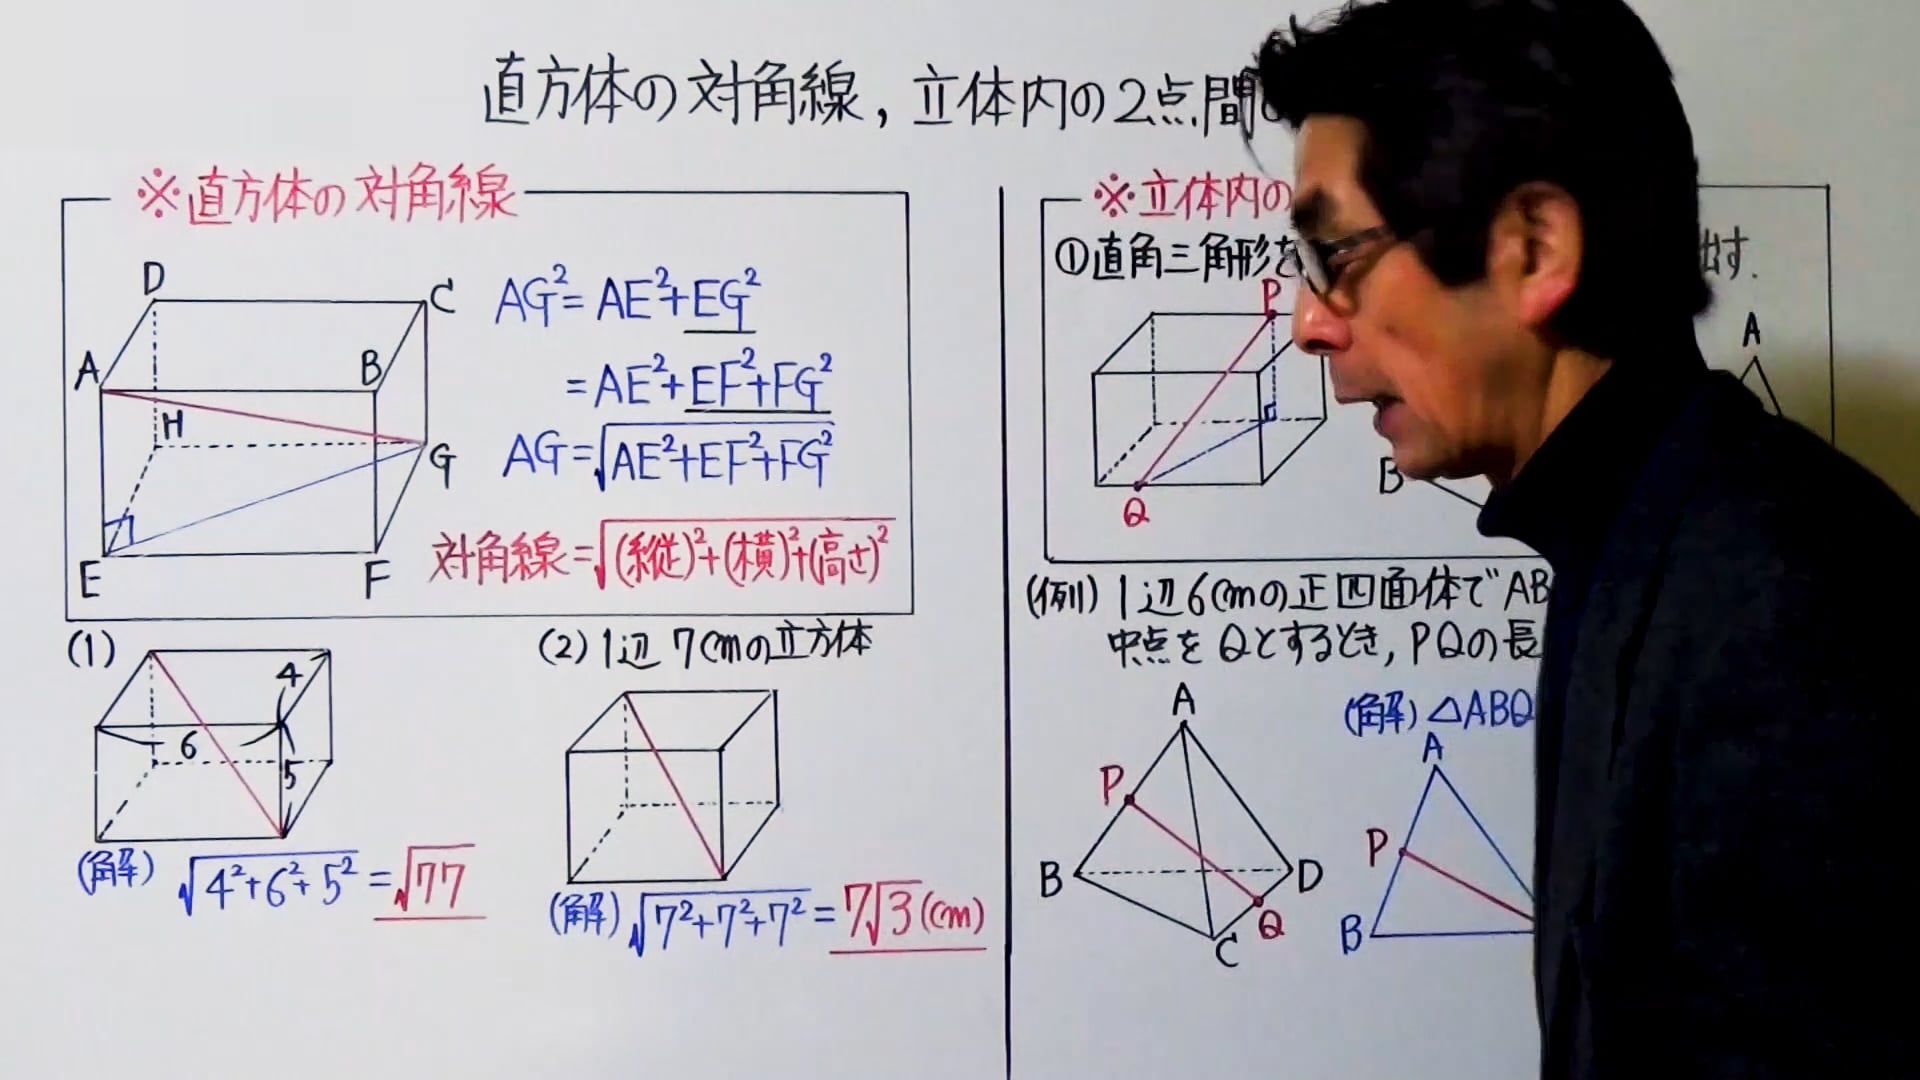 直方体の対角線,立体内の2点間
※直方体の対角線
D
C
A
B
H
G
E
F
AG²=AE²+EG²
=AE²+EF²+FG²
AG=√AE²+EF²+FG²
対角線=√(縦)²+(横)²+(高さ)²
(1)
4
6
5
(解) √4²+6²+5² = √77
(2) 1辺 7cmの立方体
(解) √7²+7²+7² = 7√3 (cm)
※立体内の
①直角三角形を
出す.
P
Q
A
B
(例) 1辺6cmの正四面体でAB
中点をQとするとき,PQの長
A
P
B
D
Q
C
(解) △ABQ
A
P
B